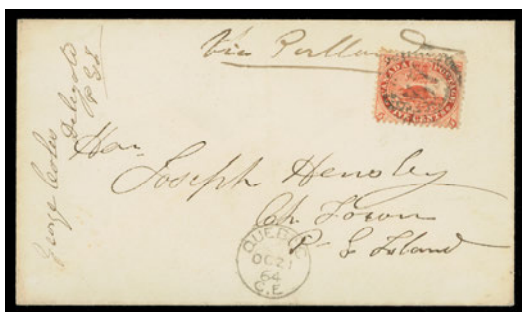 Via Portland
George Coles
Delegate
P E I
Hon.
Joseph Hensley
Ch Town
P. E Island
QUEBEC
OC 21
64
C.E
CANADA POSTAGE